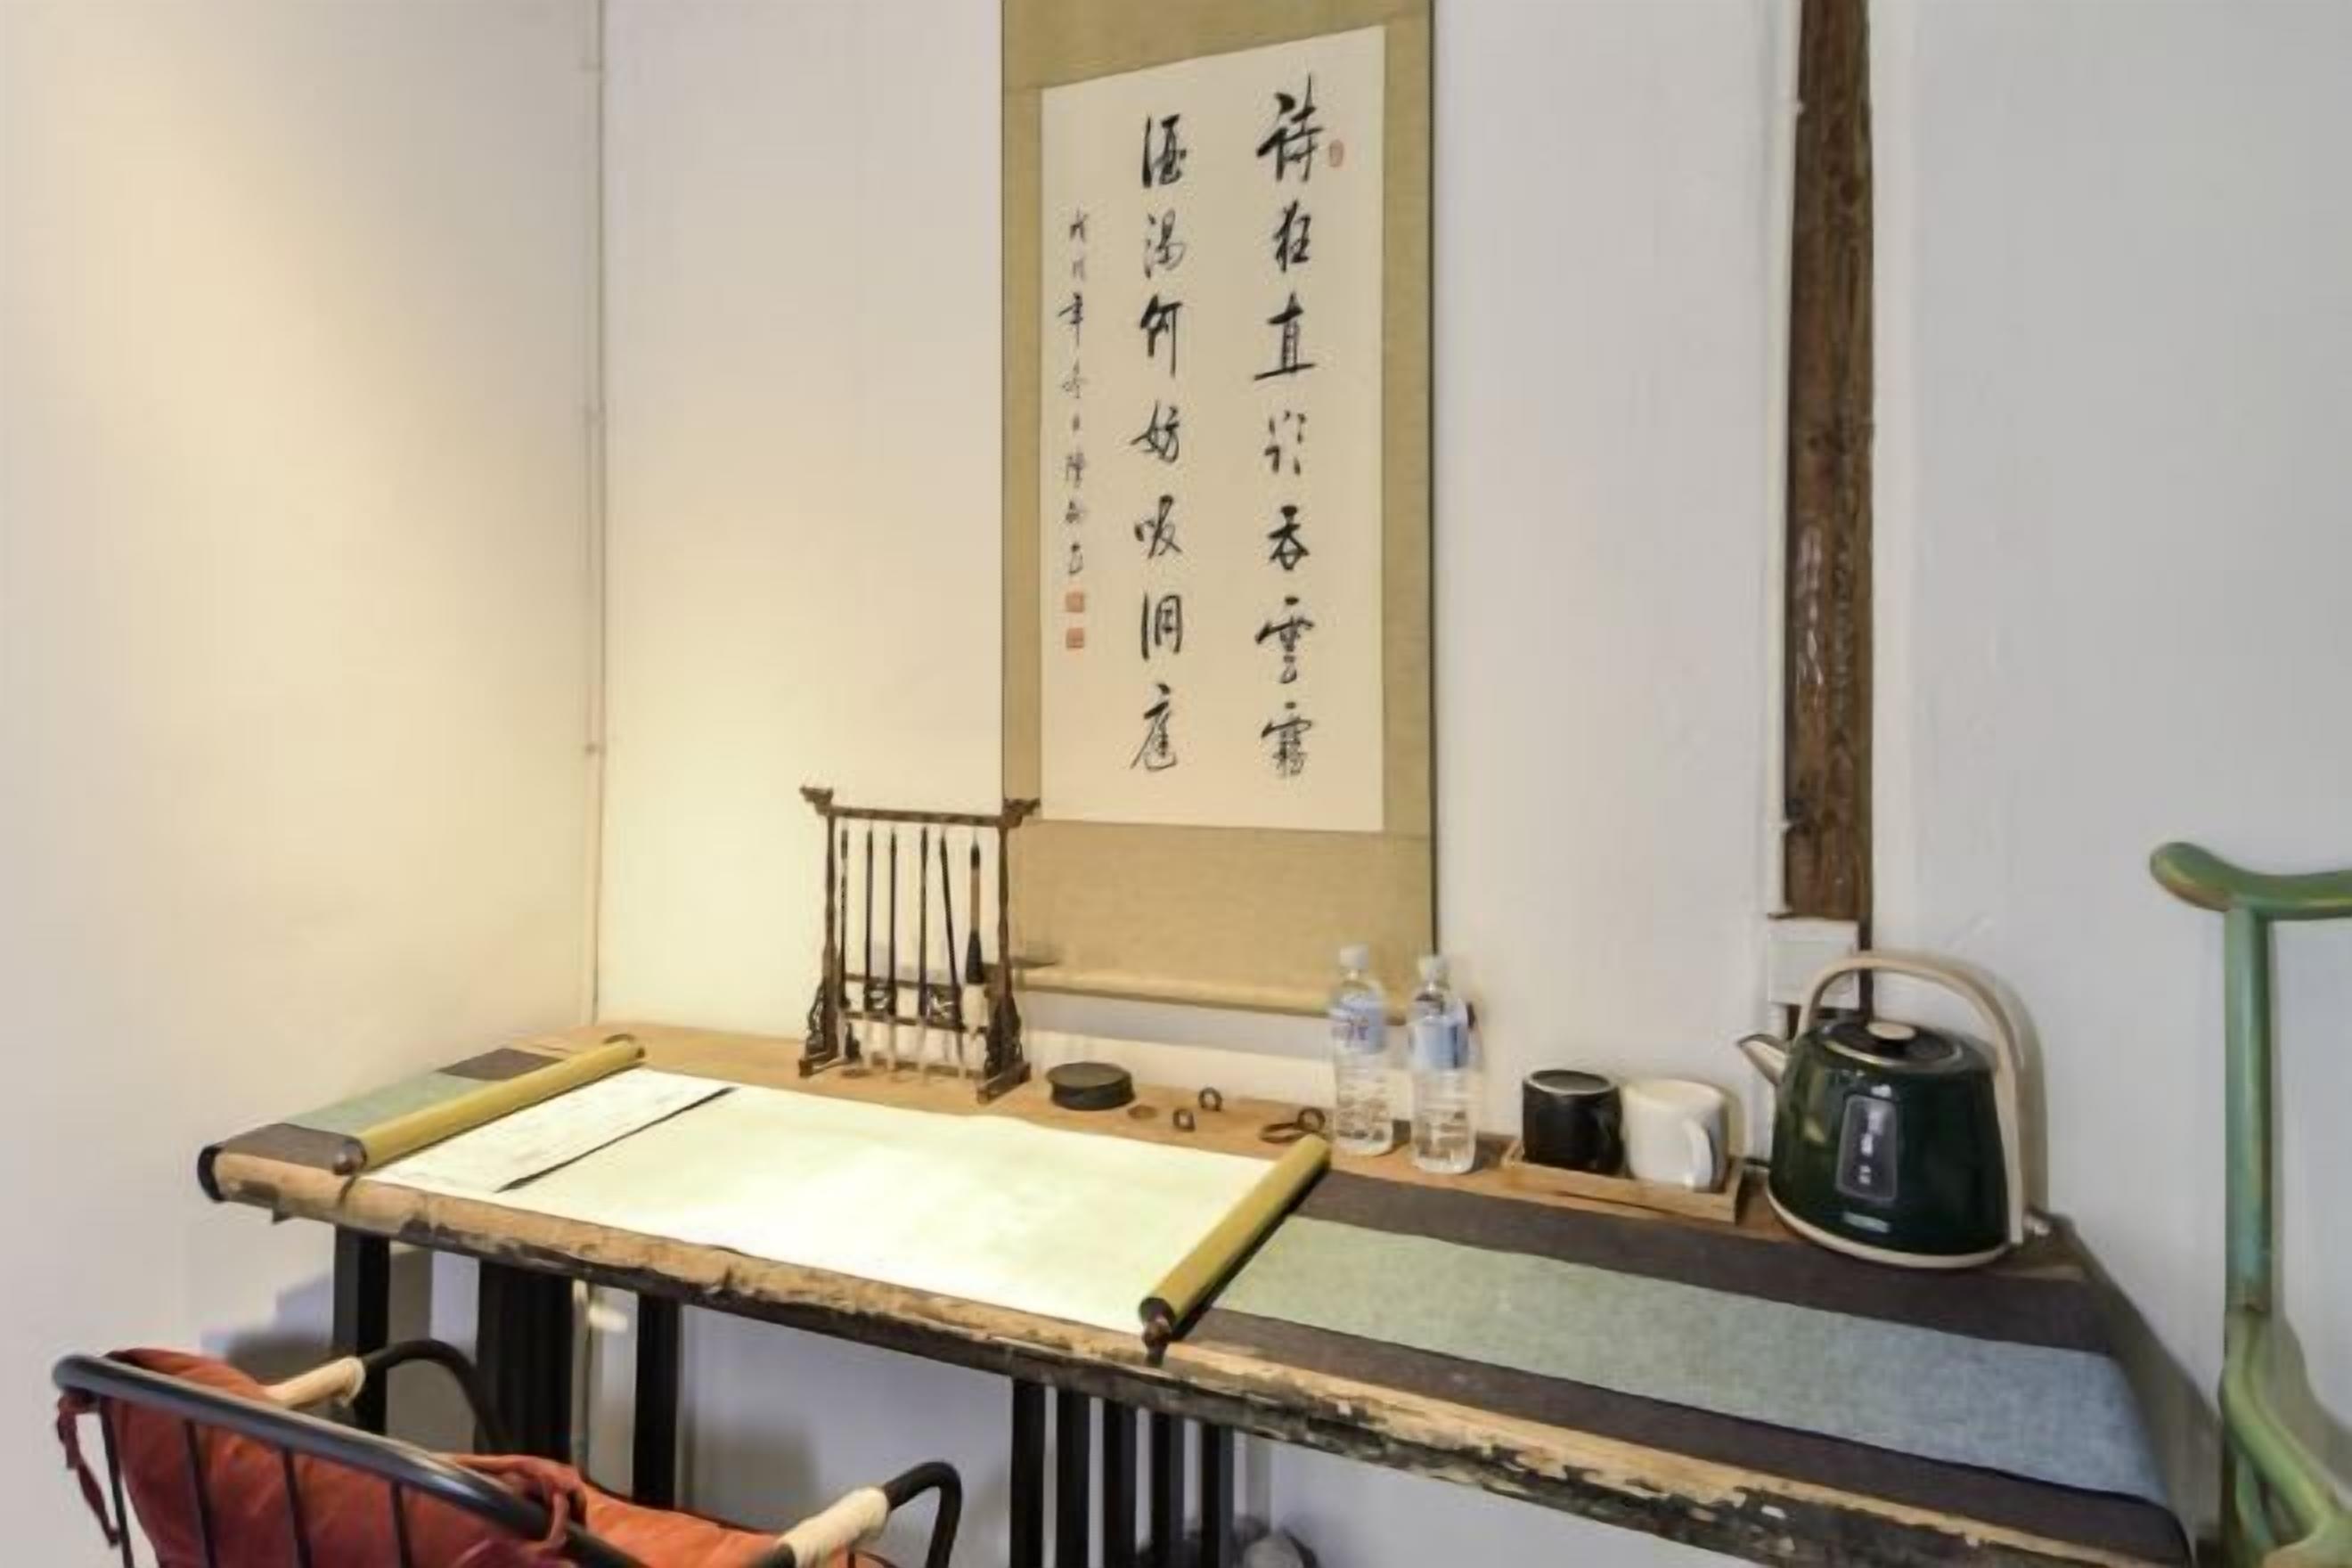 詩狂直欲吞雲霧
酒渴何妨吸洞庭
戊戌年冬日陳